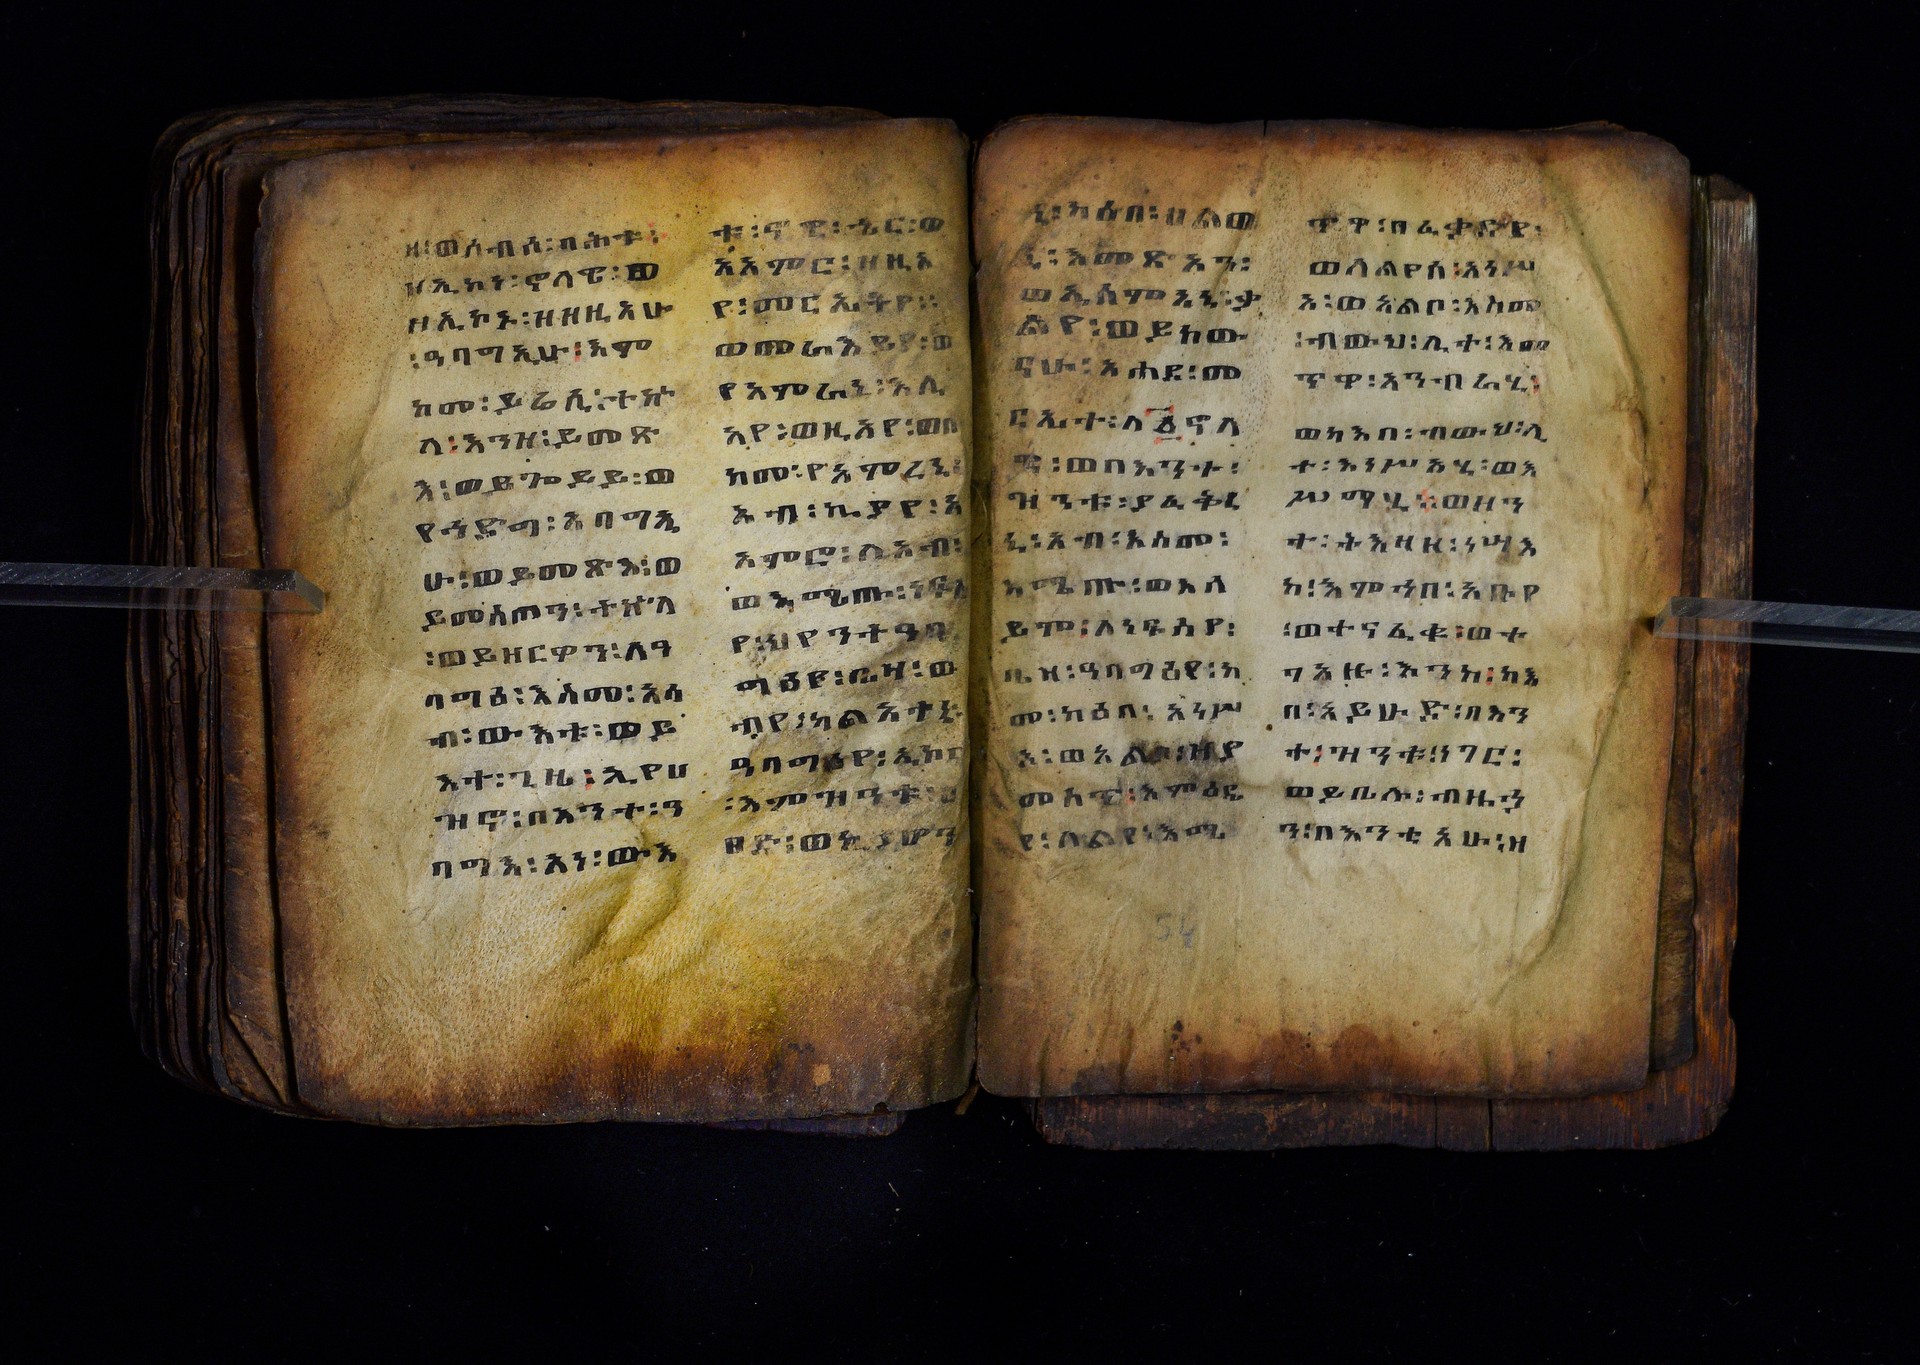 ዘ፡ወሰብሰ፡በሕቱ፡
ዘኢኮነ፡ኖላዊ፡ወ
ዘኢኮኑ፡ዝዘዚአሁ
፡ዓባግኢሁ፡እም
ከመ፡ይሬኢ፡ተኵ
ላ፡እንዘ፡ይመጽ
እ፡ወይጐይይ፡ወ
የኀድግ፡አባግዒ
ሁ፡ወይመጽእ፡ወ
ይመስጦን፡ተኵላ
፡ወይዘርዎን፡ለዓ
ባግዕ፡እስመ፡አሳ
ብ፡ውእቱ፡ወይ
እተ፡ጊዜ፡ኢየሀ
ዝኖ፡በእንተ፡ዓ
ባግእ፡አነ፡ውእ
ቱ፡ኖዊ፡ኄር፡ወ
አአምር፡ዘዚአ
የ፡መርኤትየ፡
ወመራእይየ፡ወ
የአምራኒ፡እሊ
አየ፡ወዚአየ፡ወበ
ከመ፡የአምረኒ፡
አብ፡ኪያየ፡አ
አምሮ፡ለአብ፡
ወእሜጡ፡ነፍስ
የ፡ህየንተዓባ
ግዕየ፡ቤዛ፡ወ
ብየ፡ካልአተኒ
ዓባግዕየ፡ኢኮና
፡እምዝንቱ፡ዐ
ፀድ፡ወኪያሆን
ኒ፡ካዕበ፡ሀልወ
ኒ፡እመጽአን፡
ወኢሰምዓኒ፡ቃ
ልየ፡ወይከው
ናሁ፡አሐደ፡መ
ርኤተ፡ለ፩ኖላ
ዊ፡ወበእንተ፡
ዝንቱ፡ያፈቅረ
ኒ፡አብ፡እስመ፡
እሜጡ፡ወእለ
ይም፡ለነፍስየ፡
ቤዛ፡ዓባግዕየ፡ከ
መ፡ካዕበ፡አነሥ
አ፡ወአልቦ፡ዘያ
መስጥ፡እምዕዴ
የ፡ለልየ፡እሜ
ጥዋ፡በፈቃድየ፡
ወለልየሰ፡አነሥ
አ፡ወአልቦ፡እስመ
፡ብውህ፡ሊተ፡እመ
ጥዋ፡አንብራሂ፡
ወካእበ፡ብውህ፡ሊ
ተ፡አነሥአሂ፡ወእ
ሥማሂ፡ወዘን
ተ፡ትእዛዘ፡ነሣእ
ኩ፡እምኀበ፡አቡየ
፡ወተናፈቁ፡ወተ
ግእዙ፡እንከ፡ካእ
በ፡አይሁድ፡በእን
ተ፡ዝንቱ፡ነገር፡
ወይቤሉ፡ብዙኃ
ን፡በእንቲአሁ፡ዝ
54